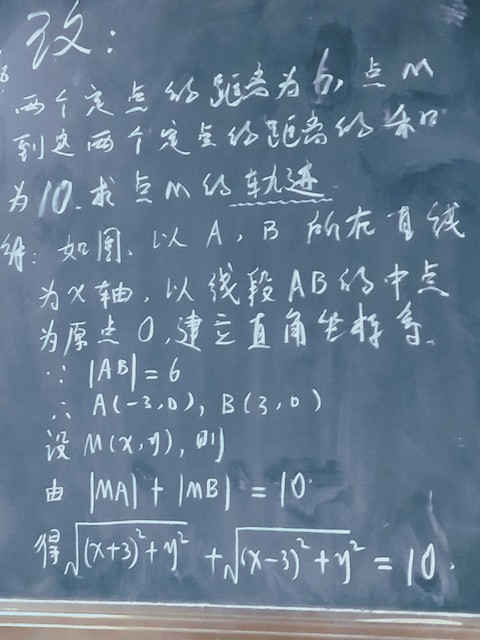 改:
两个定点的距离为6,点M
到这两个定点的距离的和
为10.求点M的轨迹.
解:如图,以A,B所在直线
为x轴,以线段AB的中点
为原点O,建立直角坐标系.
∵ |AB|=6
∴ A(-3,0), B(3,0)
设M(x,y),则
由 |MA|+|MB|=10
得√((x+3)²+y²)+√((x-3)²+y²)=10.